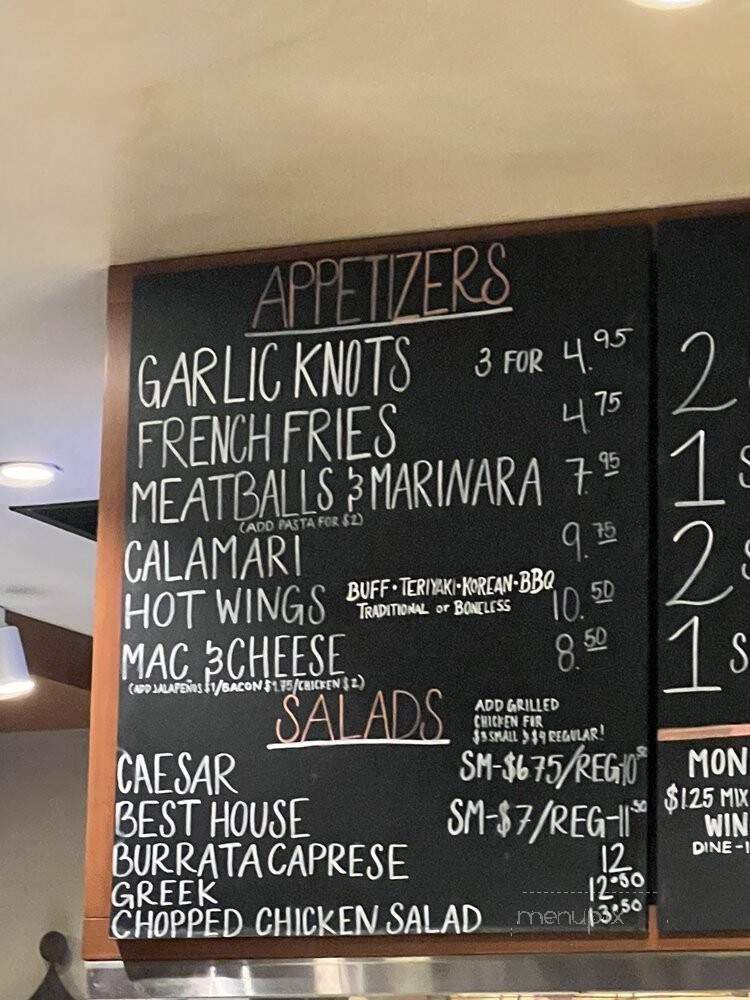 APPETIZERS
GARLIC KNOTS 3 FOR 4.95
FRENCH FRIES 4.75
MEATBALLS & MARINARA 7.95
(ADD PASTA FOR $2)
CALAMARI 9.75
HOT WINGS BUFF • TERIYAKI • KOREAN • BBQ 10.50
TRADITIONAL or BONELESS
MAC & CHEESE 8.50
(ADD JALAPEÑOS $1/BACON $1.75/CHICKEN $2)
SALADS
ADD GRILLED
CHICKEN FOR
$3 SMALL & $4 REGULAR!
CAESAR SM-$6.75/REG-10.50
BEST HOUSE SM-$7/REG-11.50
BURRATA CAPRESE 12
GREEK 12.50
CHOPPED CHICKEN SALAD 13.50
2
1 S
2 S
1 S
MON
$1.25 MIX
WIN
DINE-I
menupix